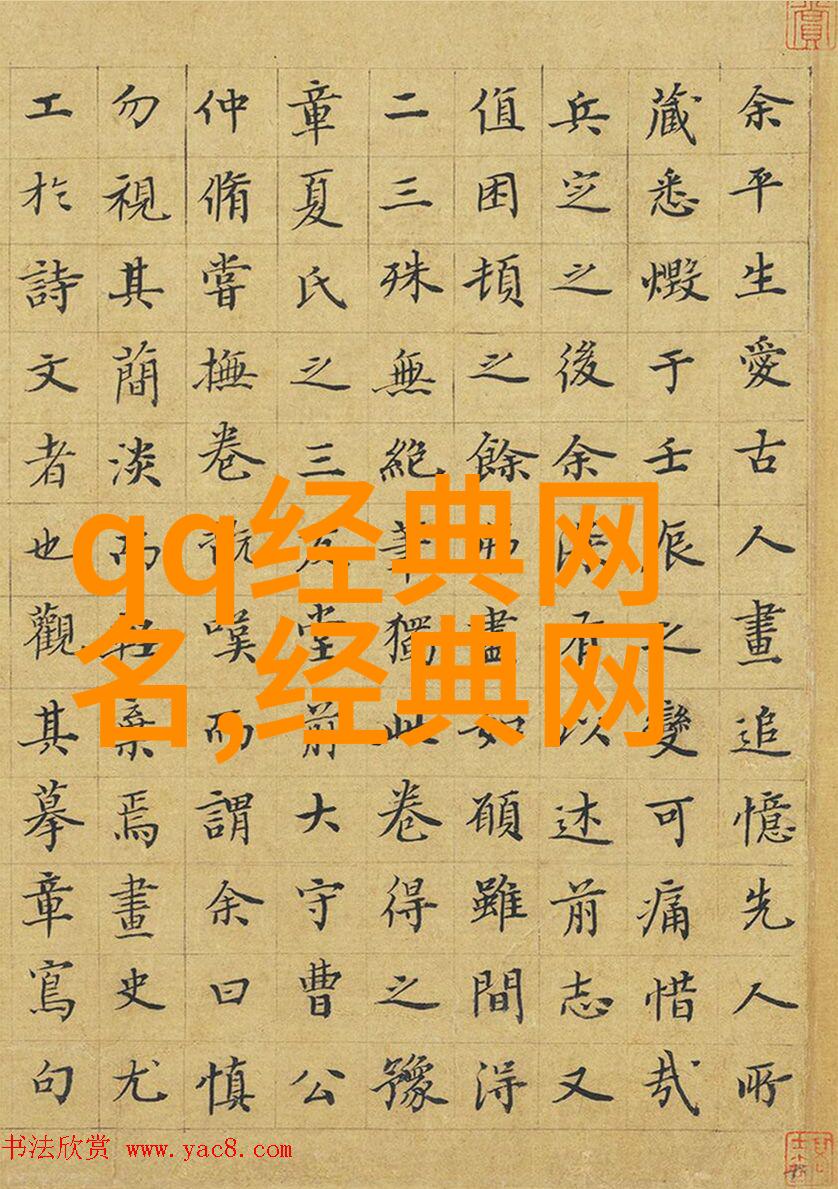 余平生愛古人畫追憶先人所
藏悉燬于壬辰之變可痛惜哉
兵定之後余有以述前志又
值困頓之餘盡如願雖間得
二三殊無絕筆獨此卷得之豫
章夏氏之三友堂前大守曹公
仲脩嘗撫卷嘆而謂余曰慎
勿視其簡淡而輕棄焉畫史尤
工於詩文者也觀其摹章寫句
qq经典网
名,经典网
书法欣赏 www.yac8.com